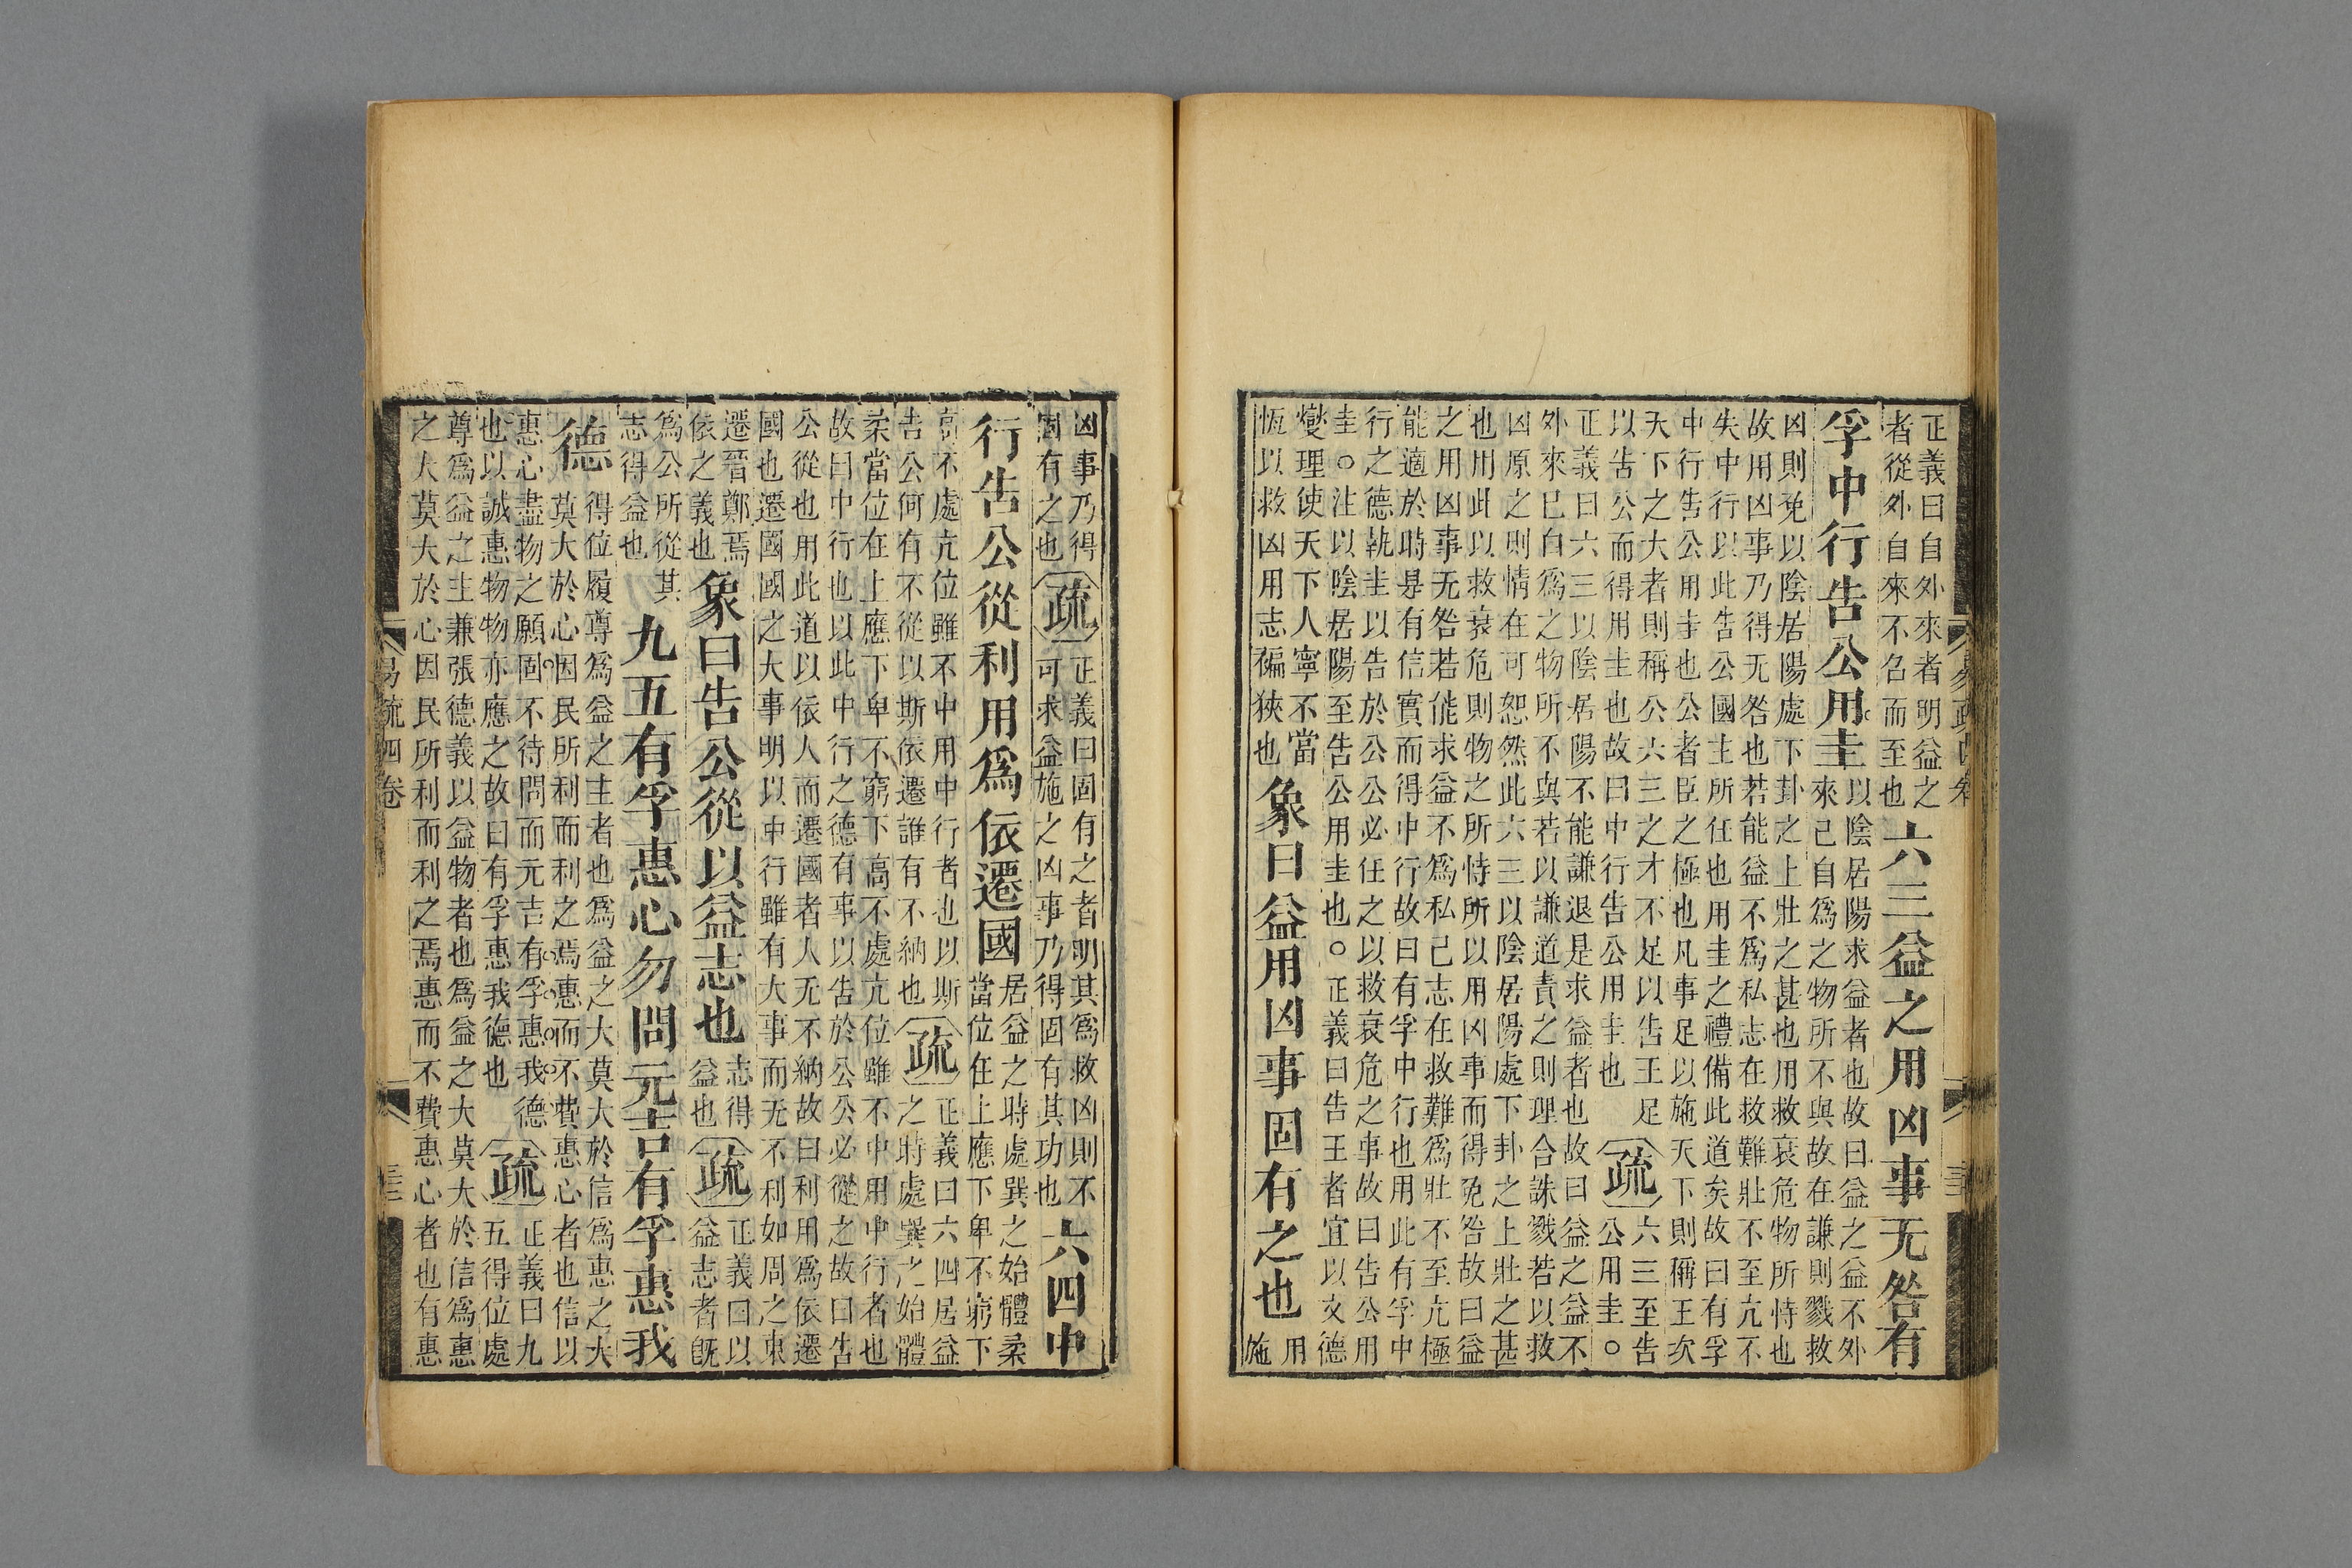 正義曰自外來者明益之
者從外自來不召而至也
六三益之用凶事无咎有
孚中行告公用圭
以陰居陽求益者也故曰益之益不外
來己自爲之物所不與故在謙則戮救
凶則免以陰居陽處下卦之上壯之甚也用救衰危物所恃也
故用凶事乃得无咎也若能益不爲私志在救難壯不至亢不
失中行以此告公國主所任也用圭之禮備此道矣故曰有孚
中行告公用圭也公者臣之極也凡事足以施天下則稱王次
天下之大者則稱公六三之才不足以告王足
以告公而得用圭也故曰中行告公用圭也
疏
六三至告
公用圭○
正義曰六三以陰居陽不能謙退是求益者也故曰益之益不
外來已自爲之物所不與若以謙道責之則理合誅戮若以救
凶原之則情在可恕然此六三以陰居陽處下卦之上壯之甚
也用此以救衰危則物之所恃所以用凶事而得免咎故曰益
之用凶事无咎若能求益不爲私己志在救難爲壯不至亢極
能適於時是有信實而得中行故曰有孚中行也用此有孚中
行之德執圭以告於公公必任之以救衰危之事故曰告公用
圭○注以陰居陽至告公用圭也○正義曰告王者宜以文德
燮理使天下人寧不當
恆以救凶用志褊狹也
象曰益用凶事固有之也
用
施
凶事乃得
固有之也
疏
正義曰固有之者明其爲救凶則不
可求益施之凶事乃得固有其功也
六四中
行告公從利用爲依遷國
居益之時處巽之始體柔
當位在上應下卑不窮下
高不處亢位雖不中用中行者也以斯
告公何有不從以斯依遷誰有不納也
疏
正義曰六四居益
之時處巽之始體
柔當位在上應下卑不窮下高不處亢位雖不中用中行者也
故曰中行也以此中行之德有事以告於公公必從之故曰告
公從也用此道以依人而遷國者人无不納故曰利用爲依遷
國也遷國國之大事明以中行雖有大事而无不利如周之東
遷晉鄭焉
依之義也
象曰告公從以益志也
志得
益也
疏
正義曰以
益志者旣
爲公所從其
志得益也
九五有孚惠心勿問元吉有孚惠我
德
得位履尊爲益之主者也爲益之大莫大於信爲惠之大
莫大於心因民所利而利之焉惠而不費惠心者也信以
惠心盡物之願固不待問而元吉有孚惠我德
也以誠惠物物亦應之故曰有孚惠我德也
疏
正義曰九
五得位處
尊爲益之主兼張德義以益物者也爲益之大莫大於信爲惠
之大莫大於心因民所利而利之焉惠而不費惠心者也有惠
易疏四卷